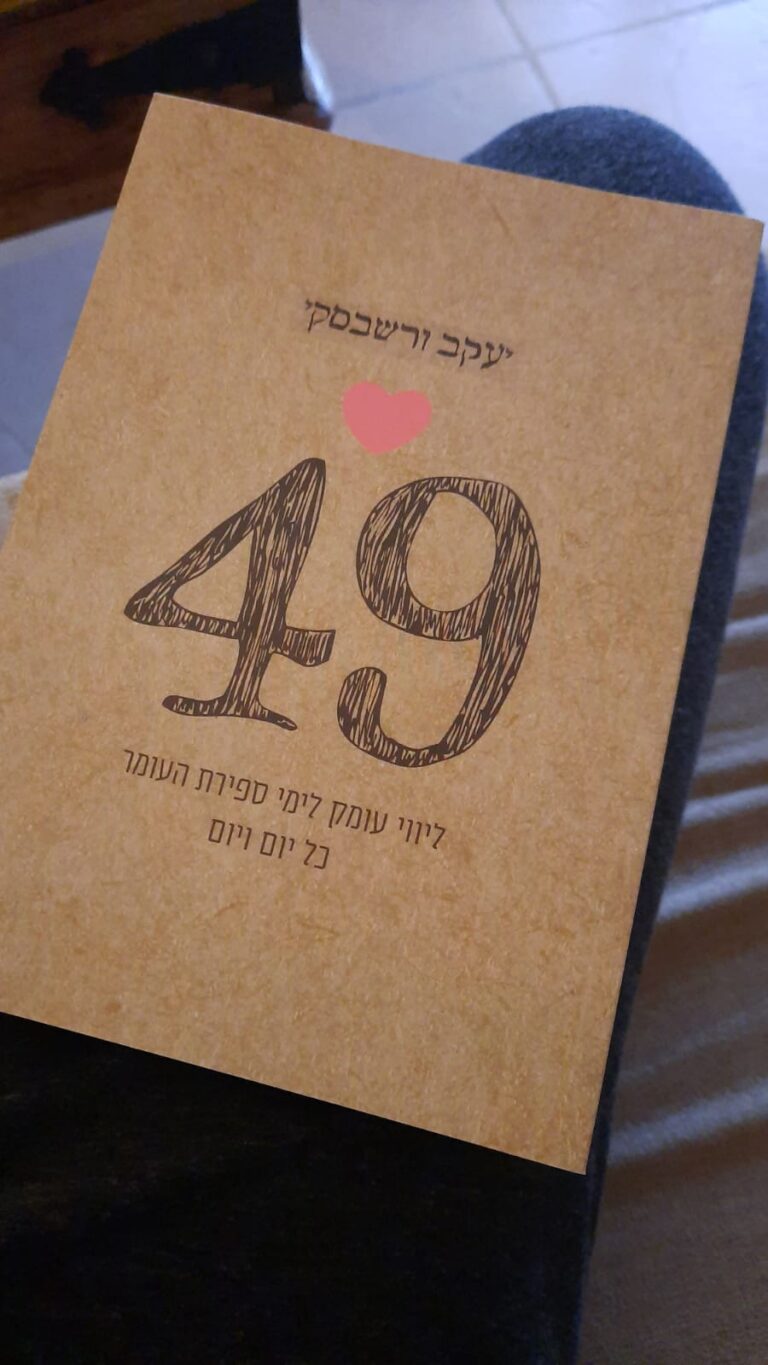 יעקב ורשבסקי
49
ליווי עומק לימי ספירת העומר
כל יום ויום